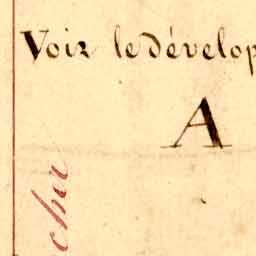 Voir le dévelop
A
cher